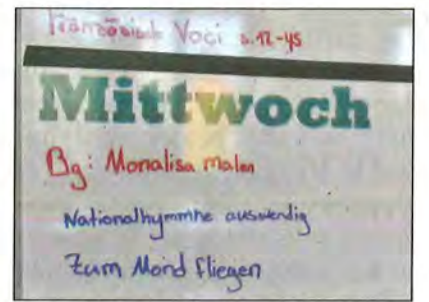 Französisch Voci s.12-45
Mittwoch
Bg: Monalisa malen
Nationalhymmne auswendig
Zum Mond fliegen